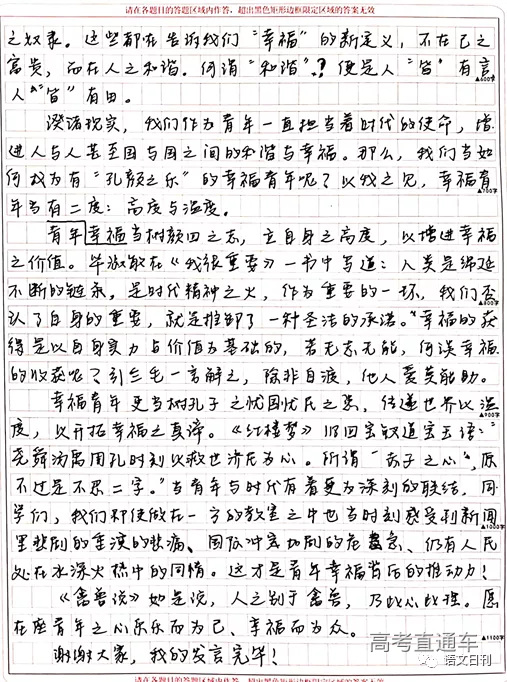 请在各题目的答题区域内作答,超出黑色矩形边框限定区域的答案无效
之奴隶。这些都在告诉我们“幸福”的新定义,不在己之
富贵,而在人之和谐。何谓“和谐”?便是人“皆”有言
▲600字
人“皆”有田。
现实,我们作为青年一直担当着时代的使命,增
进人与人甚至国与国之间的和谐与幸福。那么,我们当如
何成为有“孔颜之乐”的幸福青年呢?以我之见,幸福青
▲700字
年当有二度:高度与温度。
青年幸福当树颜回之志,立自身之高度,以增进幸福
之价值。毕淑敏在《我很重要》一书中写道:人类是绵延
不断的链条,是时代精神之火,作为重要的一环,我们否
▲800字
认了自身的重要,就是推卸了一种圣洁的承诺。“幸福的获
得是以自身实力与价值为基础的,若无志无能,何谈幸福
的收获呢?引三毛一言解之,除非自渡,他人爱莫能助。
幸福青年更当树孔子之忧国忧民之思,传递世界以温
▲900字
度,以开拓幸福之真谛。《红楼梦》旧回宝钗道宝玉语:“
尧舜汤禹周孔时刻以救世济民为心。所谓“赤子之心”,原
不过是不忍二字。”当青年与时代有着更为深刻的联结,同
学们,我们即使做在一方的教室之中也当时刻感受到新闻
▲1000字
里悲剧的重演的悲痛、国际冲突加剧的危急、仍有人民
处在水深火热中的同情。这才是青年幸福背后的推动力!
《禽兽说》如是说,人之别于禽兽,乃此心此理。愿
在座青年之心乐乐而为己、幸福而为众。
▲1100字
谢谢大家,我的发言完毕!
高考直通车
语文日刊
请在各题目的答题区域内作答,超出黑色矩形边框限定区域的答案无效